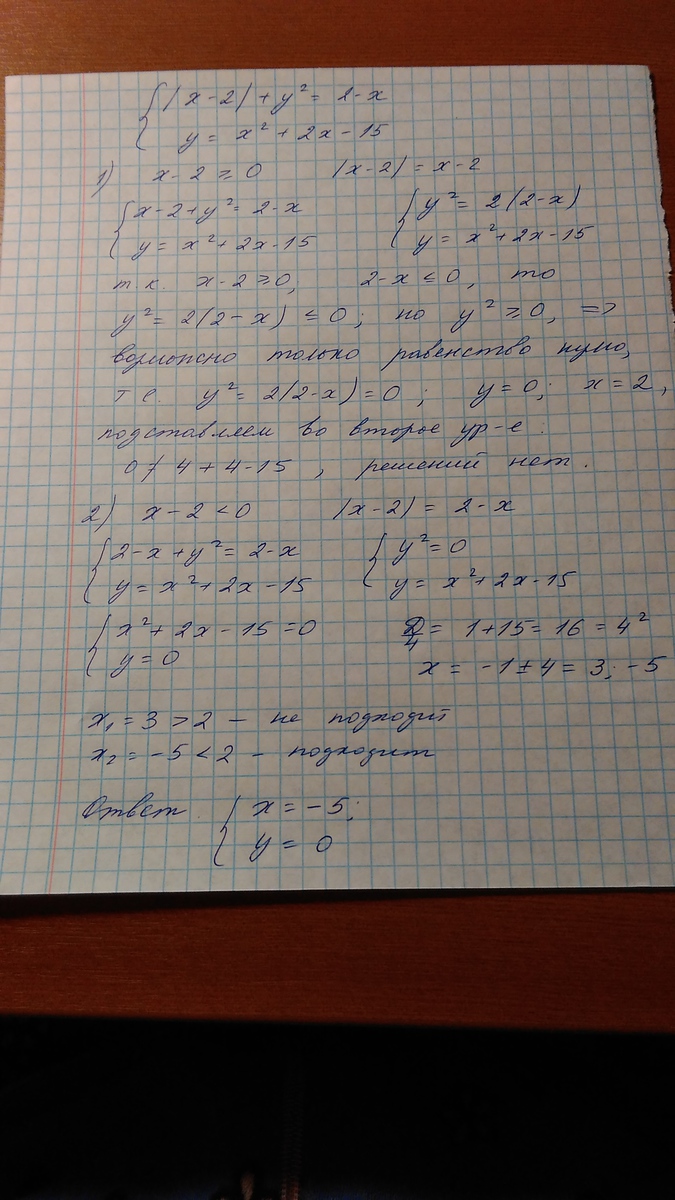 { |x-2| + y² = 2-x
y = x² + 2x - 15
1) x-2 ≥ 0 |x-2| = x-2
{ x-2+y² = 2-x { y² = 2(2-x)
y = x² + 2x - 15 y = x² + 2x - 15
т.к. x-2 ≥ 0, 2-x ≤ 0, то
y² = 2(2-x) ≤ 0; но y² ≥ 0, =>
возможно только равенство нулю,
т.е. y² = 2(2-x) = 0; y = 0; x = 2,
подставляем во второе ур-е:
0 ≠ 4 + 4 - 15, решений нет.
2) x-2 < 0 |x-2| = 2-x
{ 2-x+y² = 2-x { y² = 0
y = x² + 2x - 15 y = x² + 2x - 15
{ x² + 2x - 15 = 0 D/4 = 1 + 15 = 16 = 4²
y = 0 x = -1 ± 4 = 3; -5
x₁ = 3 > 2 - не подходит
x₂ = -5 < 2 - подходит
Ответ { x = -5;
y = 0